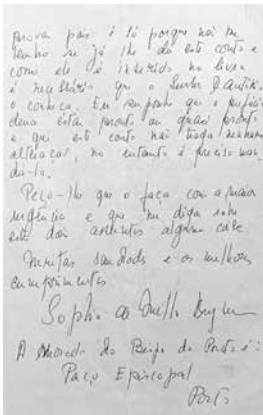 prova pois é só porque não me
lembro se já lhe dei este conto e
como ele é inserido no livro
é necessário que o Senhor
o conheça. Eu suponho que o prefácio
deve estar pronto ou quasi pronto
e que este conto não traga nenhuma
alteração, no entanto é preciso man-
dá-lo.
Peço-lhe que o faça com a maior
urgência e que me diga sobre
este dois assuntos alguma coisa
Muitas saudades e os melhores
cumprimentos
Sophia de Mello Breyner
A morada do Bispo do Porto é:
Paço Episcopal
Porto